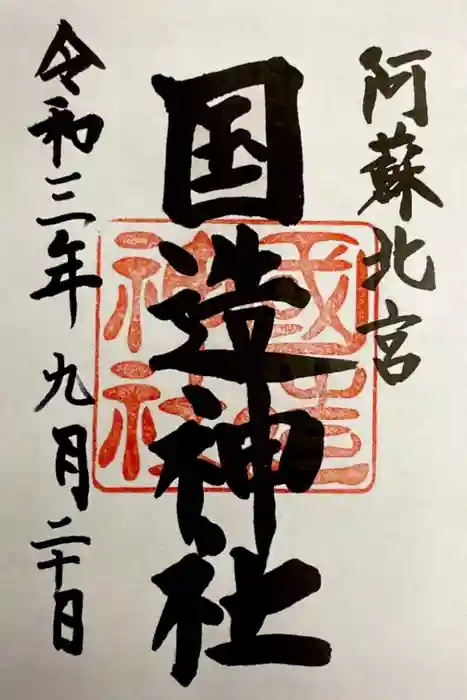 阿蘇北宮
国造神社
國造
神社
令和三年九月二十日